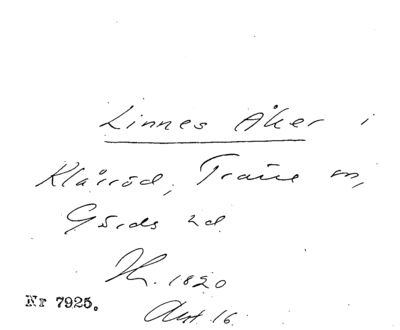 Linnes Åker i
Klåröd, Träne sn,
Gärds hd
H. 1820
Nr 7925.
Akt 16.